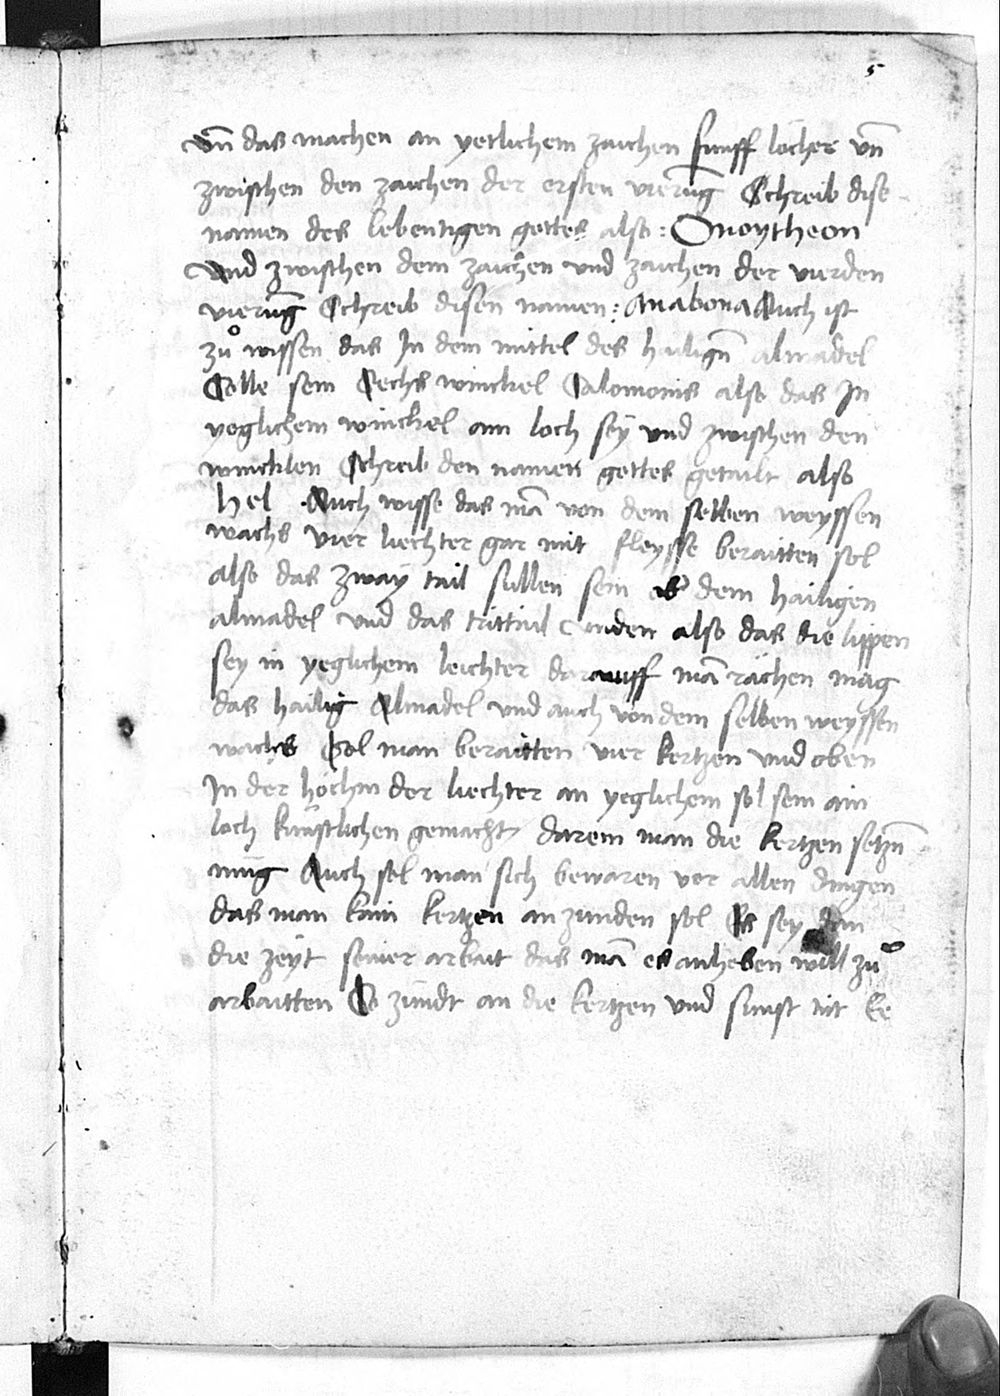 5
vn̄ das machen an yetlichem zaichen funff löcher vn̄
zwischen den zaichen der ersten vierūg Schreib dise
namen des lebentigen gottes also: Onoytheon
vnd zwischen dem zaichen vnd zaichen der vierden
vierūg Schreib disen namen: Anabona Auch ist
zů wissen das In dem mittel des hailigñ almadel
Solle sein Sechs winckel Salomonis also das In
yeglichem winckel ain loch sey vnd zwischen den
wincklen Schreib den namen gottes getailt also
hel . Auch wisse das mā von dem selben weyssen
wachs vier liechter gar mit fleysse beraitten sol
also das zway tail sullen sein ob dem hailigen
almadel vnd das trittail vnden also das die lippen
sey in yeglichem leichter darauff mā rächen mag
das hailig Almadel vnd auch von dem selben weyssen
wachs Sol man beraitten vier kertzen vnd oben
In der höchin der liechter an yeglichem sol sein ain
loch künstlichen gemacht darein man die kertzen setzn̄
müg Auch sol man sich bewaren vor allen dingen
das man kain kertzen an zünden sol Es sey dan
die zeyt seiner arbait das mā es anheben will zů
arbaitten So zündt an die kertzen vnd sunst nit Ee